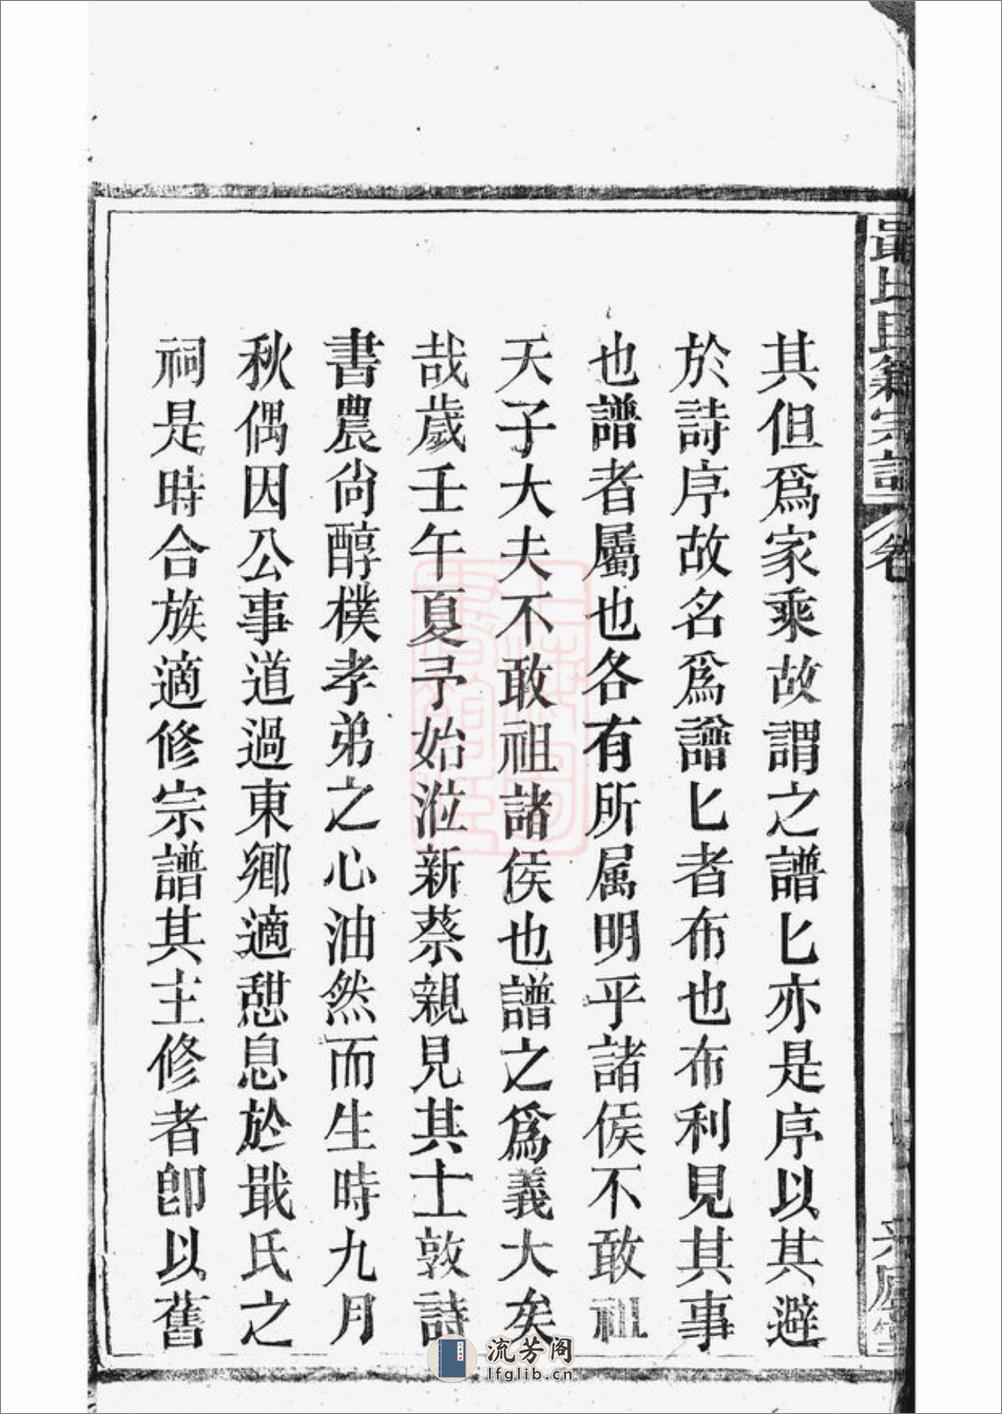 其但爲家乘故謂之譜匕亦是序以其避
於詩序故名爲譜匕者布也布利見其事
也譜者屬也各有所属明乎諸侯不敢祖
天子大夫不敢祖諸侯也譜之爲義大矣
哉歲壬午夏予始涖新蔡親見其士敦詩
書農尙醇樸孝弟之心油然而生時九月
秋偶因公事道過東鄉適憇息於戢氏之
祠是時合族適修宗譜其主修者卽以舊
流芳阁
lfglib.cn